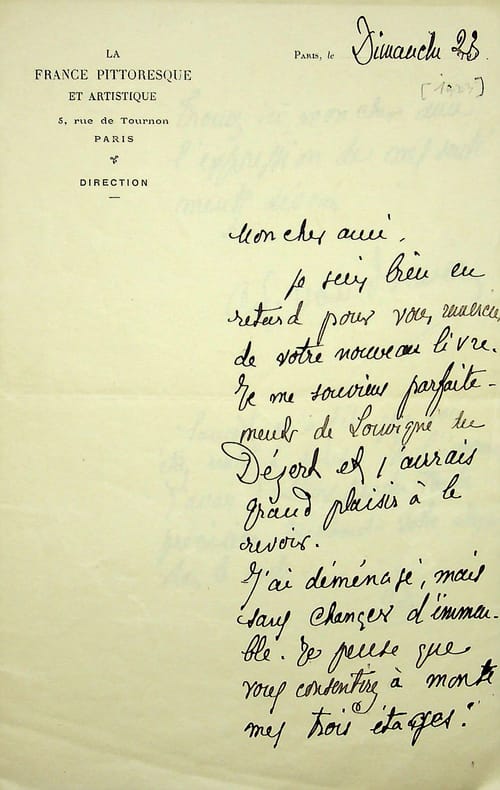 LA
FRANCE PITTORESQUE
ET ARTISTIQUE
5, rue de Tournon
PARIS
DIRECTION
Paris, le Dimanche 23
Mon cher ami,
je suis bien en
retard pour vous remercier
de votre nouveau livre.
Je me souviens parfaite-
ment de Louvigné du
Désert et j'aurais
grand plaisir à le
revoir.
J'ai déménagé, mais
sans changer d'immeu-
ble. Je pense que
vous consentirez à monter
mes trois étages.